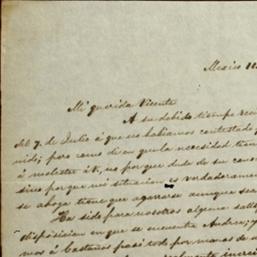 Mexico 11
Mi querida Vicente
A su debido tiempo rec
del 7 de Julio á que no habiamos contestado p
nid; pero como dicen que la necesidad tien
á molestar á V. no por que dude de su caso
sino por que mi situacion es verdaderamen
se ahoga tiene que agarrarse aunque sea
Ha sido para nosotros alguna sati
disposicion en que se encuentra Andres; y
mos á Castaños pasó todo por manos de